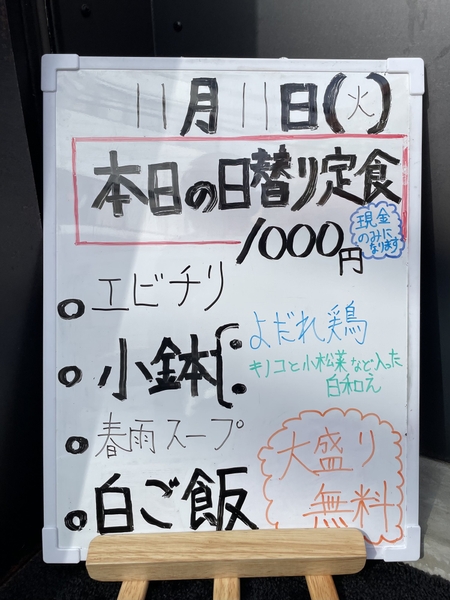 11月11日(火)
本日の日替り定食
1000円
現金
のみに
なります
エビチリ
小鉢
よだれ鶏
キノコと小松菜など入った
白和え
春雨スープ
白ご飯
大盛り
無料